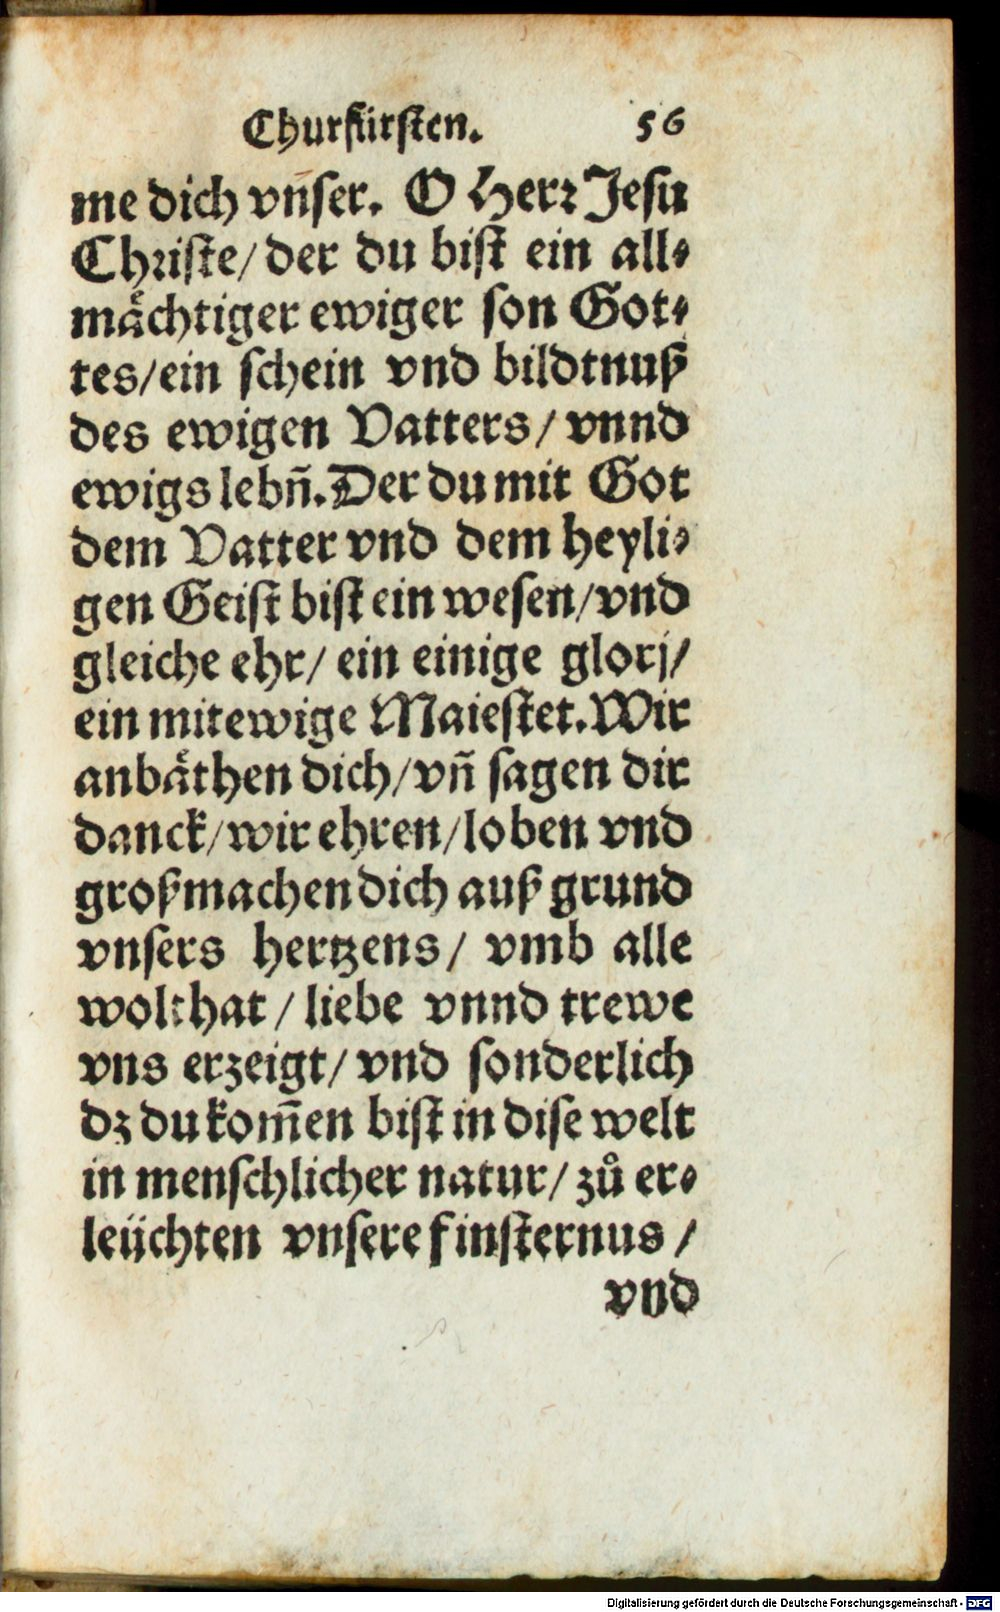 Churfürsten. 56
me dich vñser. O Herꝛ Jesu
Chꝛiste/ der du bist ein all⸗
mächtiger ewiger son Got⸗
tes/ein schein vnd bildtnuß
des ewigen Vatters/ vnnd
ewigs lebñ. Der du mit Got
dem Vatter vnd dem heyli⸗
gen Geist bist ein wesen/vnd
gleiche ehr/ ein einige glorj/
ein mitewige Maiestet. Wir
anbäthen dich/vñ sagen dir
danck/wir ehren/loben vnd
großmachen dich auß grund
vnsers hertzens/ vmb alle
wolthat / liebe vnnd trewe
vns erzeigt/ vnd sonderlich
dz du kom̃en bist in dise welt
in menschlicher natur/ zů er⸗
leüchten vnsere finsternus /
vnd
Digitalisierung gefördert durch die Deutsche Forschungsgemeinschaft - DFG